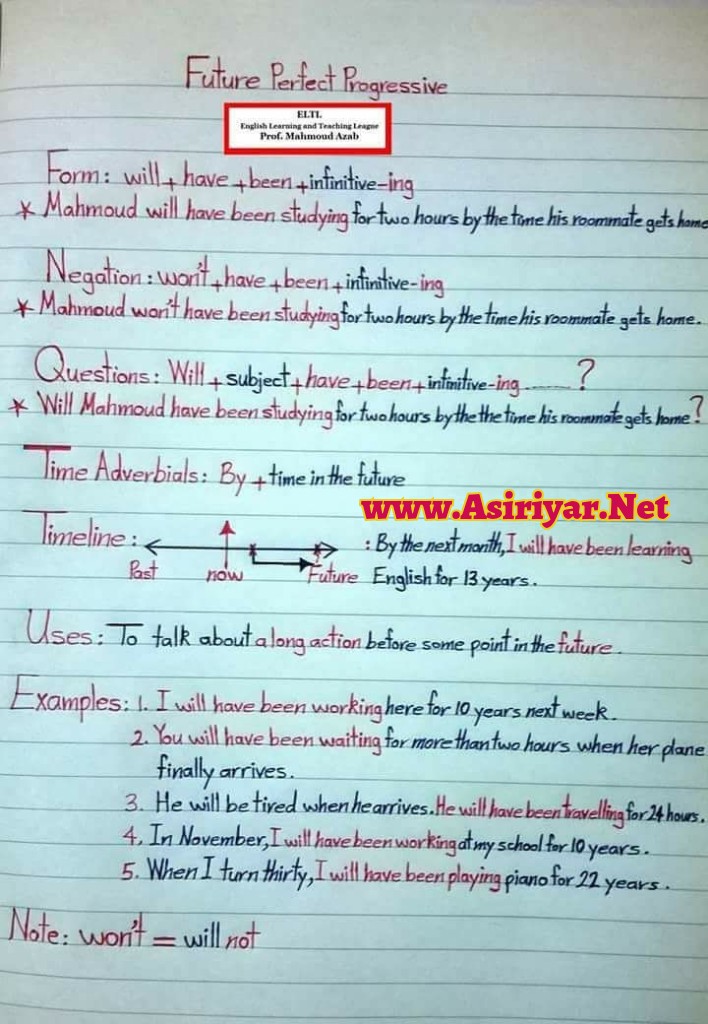 Future Perfect Progressive
ELTL
English Learning and Teaching League
Prof. Mahmoud Azab
Form: will + have + been + infinitive-ing
* Mahmoud will have been studying for two hours by the time his roommate gets home
Negation: won't + have + been + infinitive-ing
* Mahmoud won't have been studying for two hours by the time his roommate gets home.
Questions: Will + subject + have + been + infinitive-ing ........ ?
* Will Mahmoud have been studying for two hours by the the time his roommate gets home?
Time Adverbials: By + time in the future
www.Asiriyar.Net
Timeline: : By the next month, I will have been learning
Past now Future English for 13 years.
Uses: To talk about a long action before some point in the future.
Examples: 1. I will have been working here for 10 years next week.
2. You will have been waiting for more than two hours when her plane
finally arrives.
3. He will be tired when he arrives. He will have been travelling for 24 hours.
4. In November, I will have been working at my school for 10 years.
5. When I turn thirty, I will have been playing piano for 22 years.
Note: won't = will not